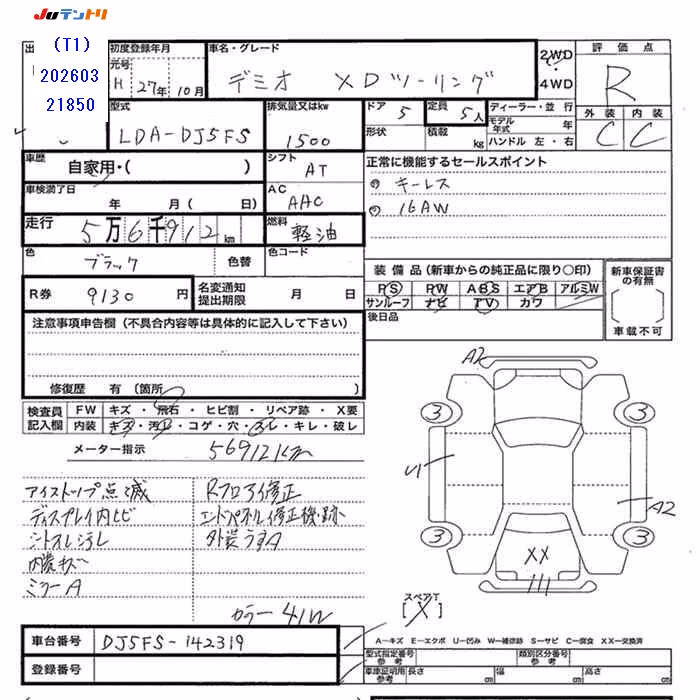 JUテントリ
出
(T1)
202603
21850
初度登録年月
元号
H 27年 10月
車名・グレード
デミオ XDツーリング
2WD
4WD
評価点
R
外装 内装
C C
型式
LDA-DJ5FS
排気量又はkw
1500
ドア 5
形状
定員 5人
積載 kg
ディーラー・並行
モデル年式 年
ハンドル 左・右
車歴
自家用・( )
シフト
AT
正常に機能するセールスポイント
キーレス
16AW
車検満了日
年 月( 日)
AC
AAC
走行
5万6千912km
燃料
軽油
色
ブラック
色替
色コード
装備品(新車からの純正品に限り○印)
PS PW ABS エアB アルミW
サンルーフ ナビ TV カワ
後日品
新車保証書の有無
[ ]
車載不可
R券 9130 円
名変通知
提出期限
月 日
注意事項申告欄(不具合内容等は具体的に記入して下さい)
修復歴 有(箇所 )
検査員
記入欄
FW キズ・飛石・ヒビ割・リペア跡・X要
内装 キズ・汚レ・コゲ・穴・スレ・キレ・破レ
メーター指示 56912Km
アイストップ点滅
ディスプレイ内ヒビ
シートスレ汚レ
内張キズ
ミラーA
Rフロア修正
エンドパネル修正機跡
外装うすA
カラー 41W
A2
3
3
U1
A2
3
3
XX
スペアT
[X]
A-キズ E-エクボ U-凹み W-補修跡 S-サビ C-腐食 XX-交換済
車台番号 DJ5FS-142319
登録番号
型式指定番号
参考
類別区分番号
参考
車庫証明用
参考
長さ cm
幅 cm
高さ cm